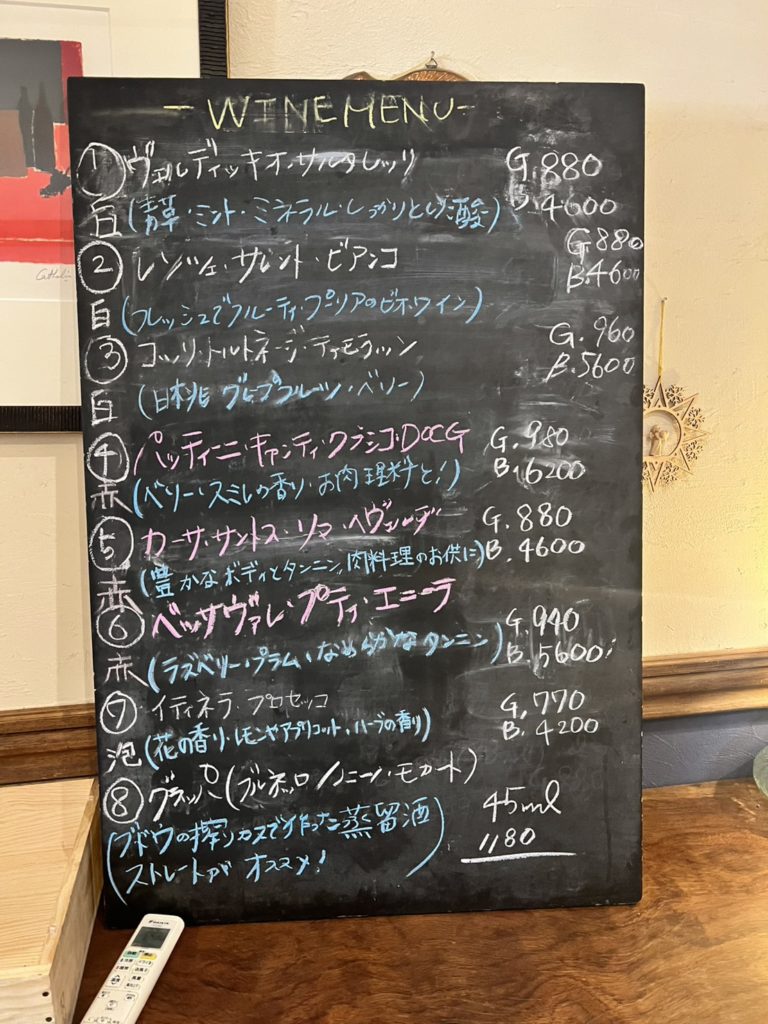 - WINE MENU -
① ヴェルディッキオ・サルタレッリ G.880
白 (青草・ミント・ミネラル・しっかりとした酸) B.4600
② レゾッシェ・サレント・ビアンコ G.880
B.4600
白 (フレッシュでフルーティ・プーリアのビオ・ワイン)
③ コッリ・トルトネージ・ティモラッソ G.960
B.5600
白 (白桃・グレープフルーツ・ベリー)
④ パッティーニ・キャンティ・クラシコ・DOCG G.980
赤 (ベリー・スミレの香り・お肉理料と!) B.6200
⑤ カーサ・サントス・リマ・ G.880
赤 (豊かなボディとタンニン,肉料理のお供に) B.4600
⑥ ベッサヴァレー・プティ・エニーラ G.940
赤 (ラズベリー・プラム・なめらかなタンニン) B.5600
⑦ イティネラ・プロセッコ G.770
泡 (花の香り・レモンやアプリコット・ハーブの香り) B.4200
⑧ グラッパ(ブルネッロ/ノニーノ・モカート) 45ml
1180
(ブドウの搾りカスで作った蒸留酒
ストレートがオススメ!)
DAIKIN